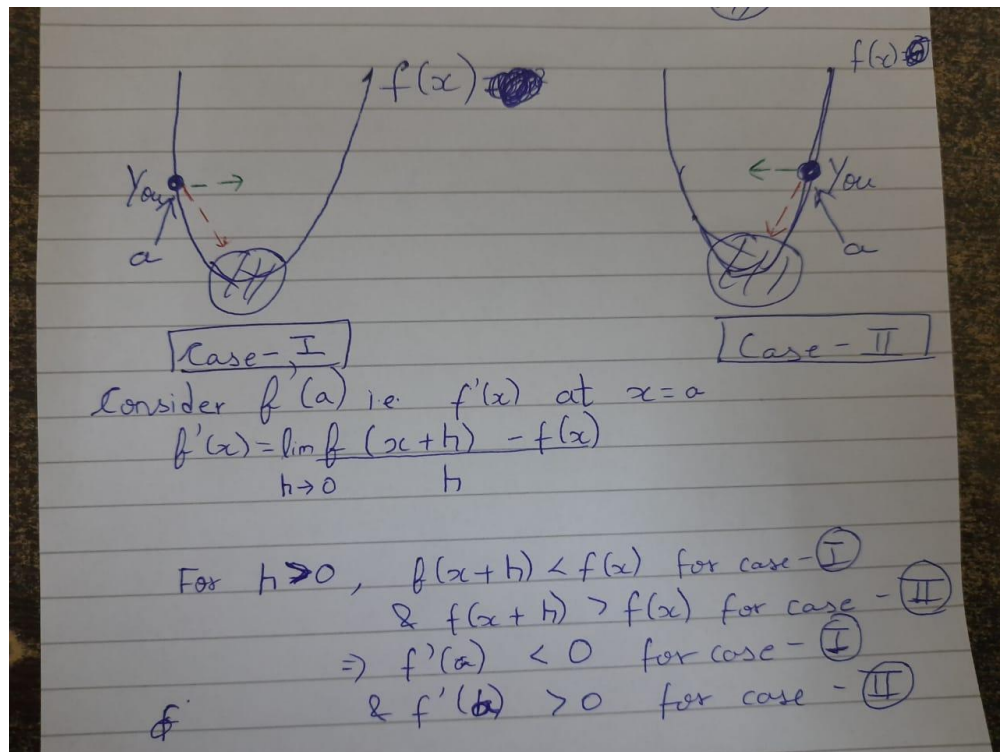 f(x)
f(x)
You
You
a
a
Case - I
Case - II
Consider f'(a) i.e. f'(x) at x = a
f'(x) = lim f (x+h) - f(x)
h→0 h
For h>0, f(x+h) < f(x) for case - I
& f(x+h) > f(x) for case - II
⇒ f'(a) < 0 for case - I
& f'(a) > 0 for case - II